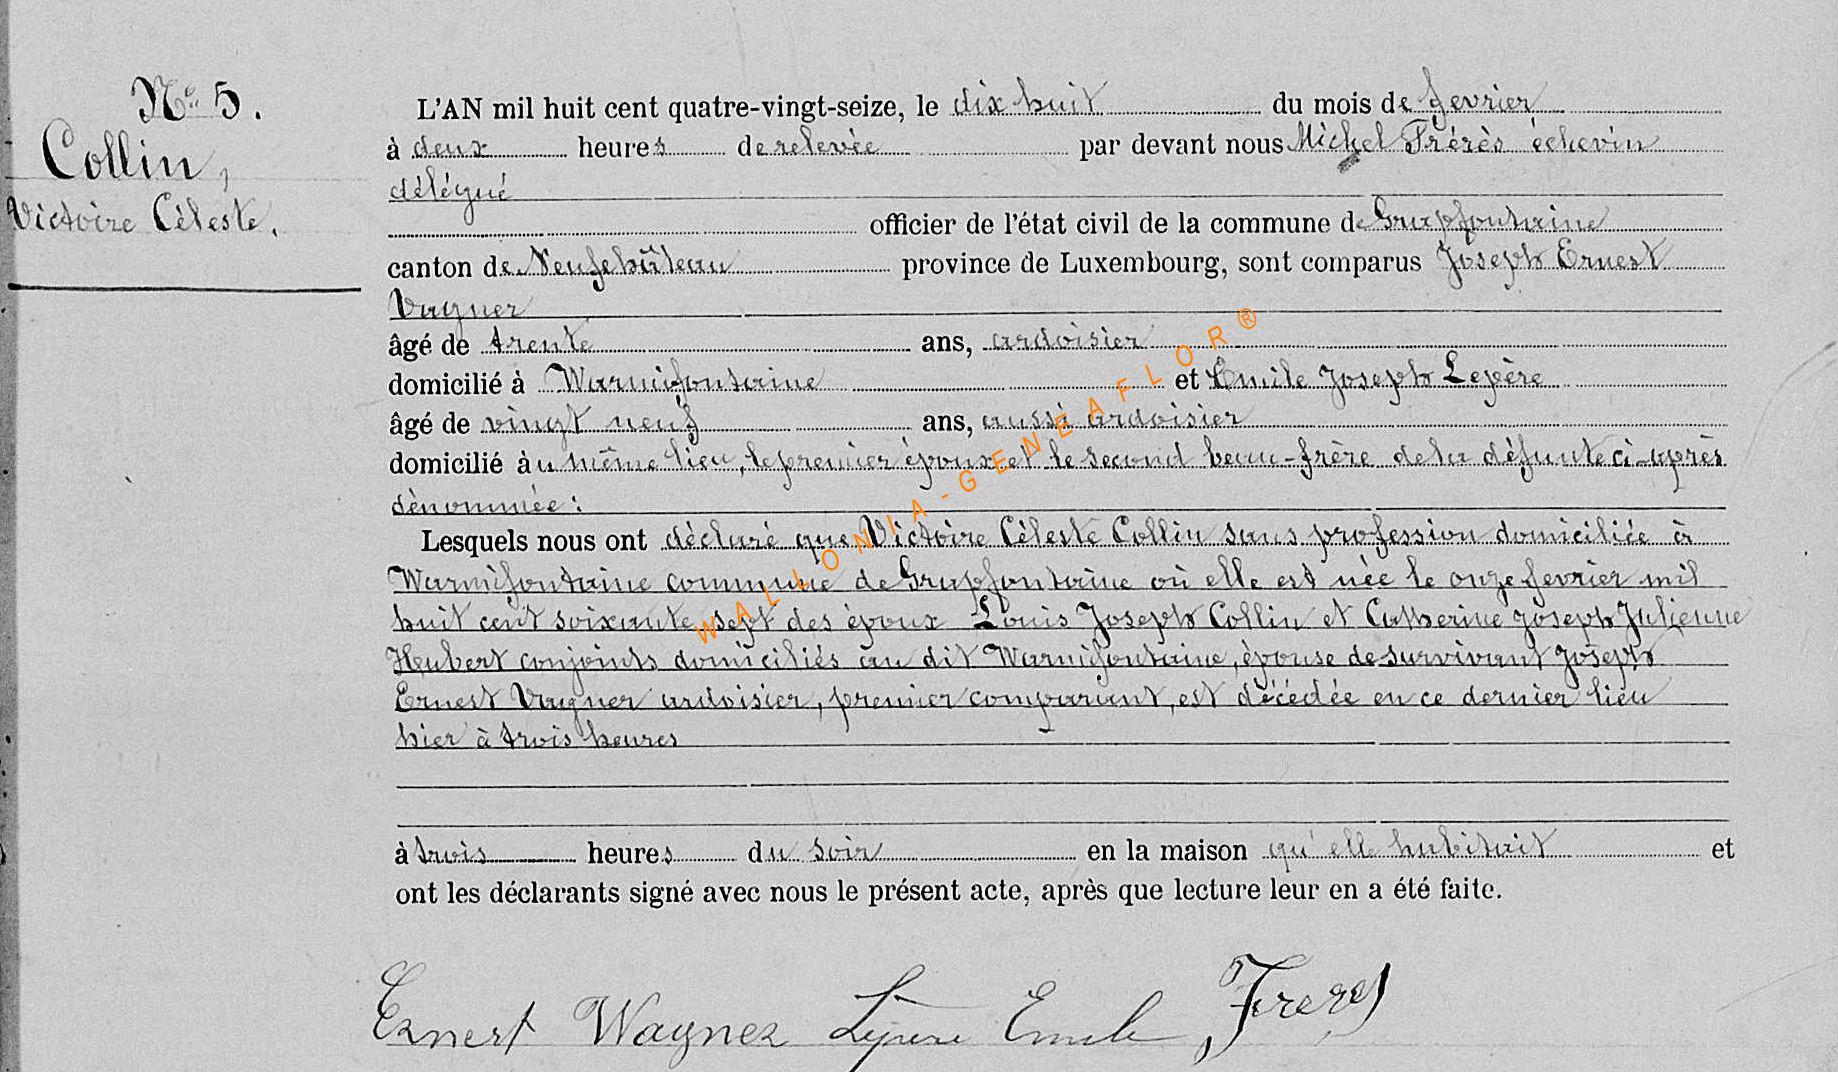 Nº 5.
Collin,
Victoire Céleste.
L'AN mil huit cent quatre-vingt-seize, le dix huit du mois de fevrier
à deux heures de relevée par devant nous Michel Frérès échevin
délégué
officier de l'état civil de la commune de Grapfontaine
canton de Neufchâteau province de Luxembourg, sont comparus Joseph Ernest
Vagner
âgé de trente ans, ardoisier
domicilié à Warmifontaine et Emile Joseph Lepère
âgé de vingt neuf ans, aussi ardoisier
domicilié au même lieu, le premier époux et le second beau-frère de la défunte ci-après
dénommée:
Lesquels nous ont déclaré que Victoire Céleste Collin sans profession domiciliée à
Warmifontaine commune de Grapfontaine où elle est née le onze fevrier mil
huit cent soixante sept des époux Louis Joseph Collin et Catherine Joseph Julienne
Hubert conjoints domiciliés au dit Warmifontaine, épouse de survivant Joseph
Ernest Vagner ardoisier, premier comparant, est décédée en ce dernier lieu
hier à trois heures
à trois heures du soir en la maison qu'elle habitait et
ont les déclarants signé avec nous le présent acte, après que lecture leur en a été faite.
Ernest Wagner Lepere Emile Freres
WALLONIA-GENEAFLOR®